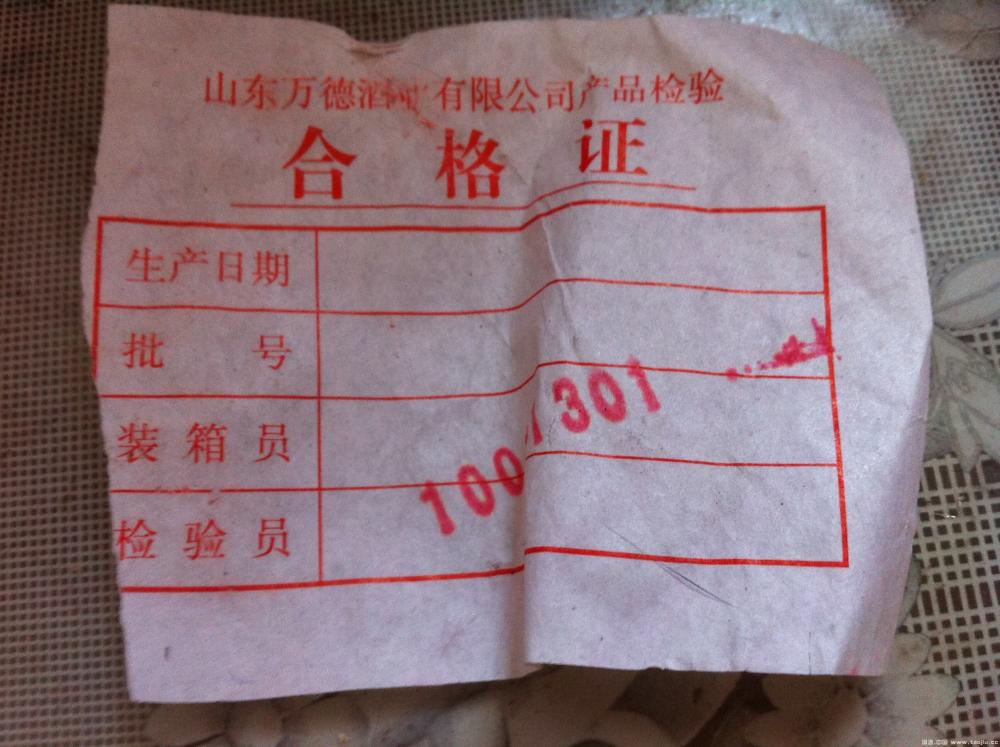 山东万德酒业有限公司产品检验
合格证
生产日期
批号
装箱员
检验员
1001301
www.taojiu.cc